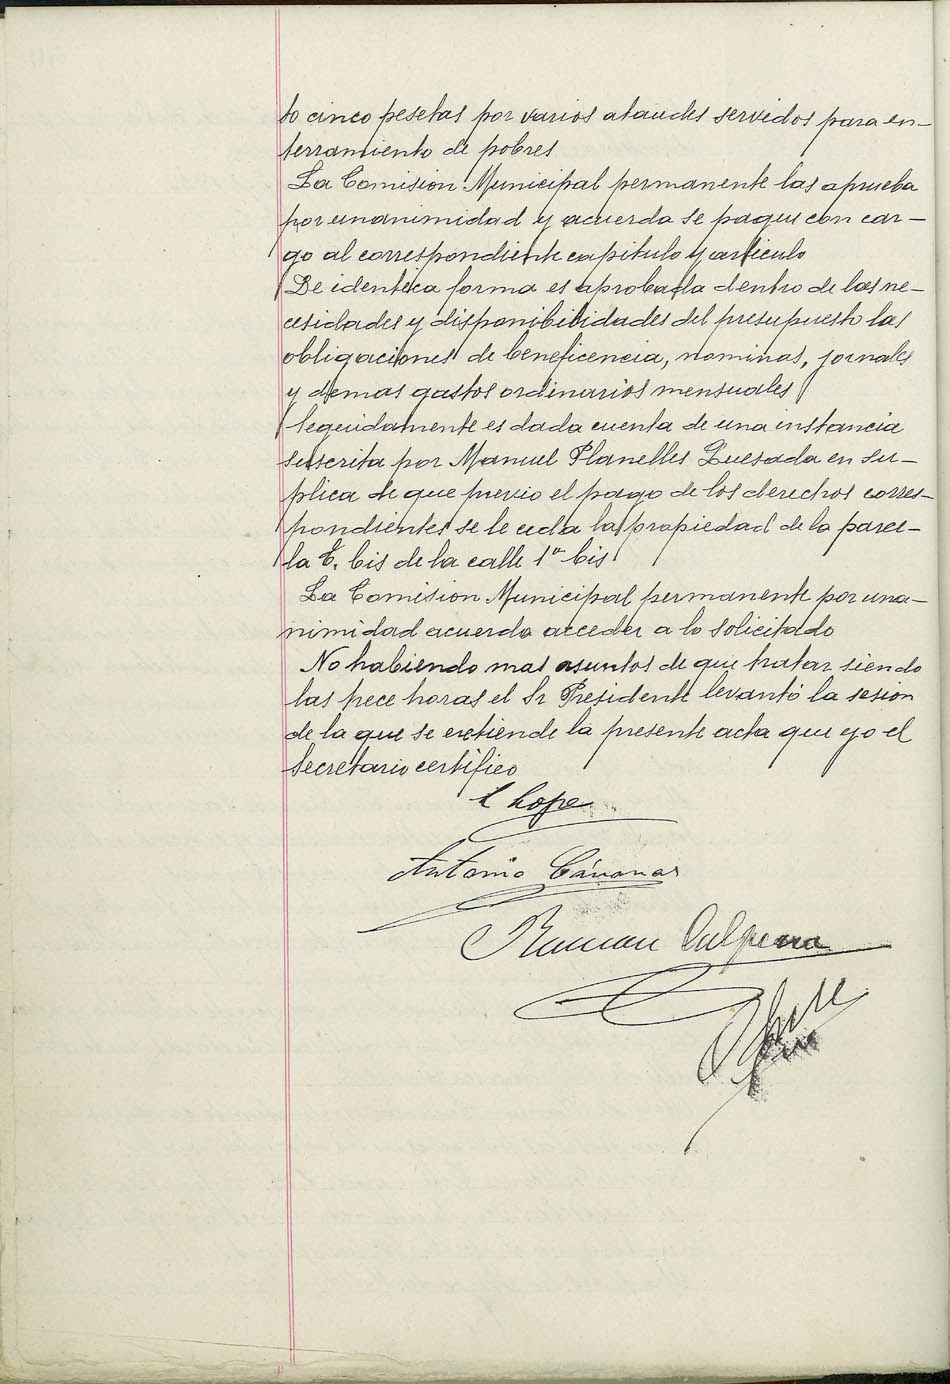 to cinco pesetas por varios ataudes servidos para en-
terramiento de pobres
La Comision Municipal permanente las aprueba
por unanimidad y acuerda se pague con car-
go al correspondiente capitulo y articulo
De identica forma es aprobada dentro de las ne-
cesidades y disponibilidades del presupuesto las
obligaciones de beneficencia, nominas, jornales
y demas gastos ordinarios mensuales
Seguidamente es dada cuenta de una instancia
suscrita por Manuel Planelles Quesada en su-
plica de que previo el pago de los derechos corres-
pondientes se le ceda la propiedad de la parce-
la E. bis de la calle 1ª bis
La Comision Municipal permanente por una-
nimidad acuerda acceder a lo solicitado
No habiendo mas asuntos de que tratar siendo
las trece horas el Sr Presidente levantó la sesion
de la que se extiende la presente acta que yo el
Secretario certifico
Lope
Antonio Cánovas
Ramon